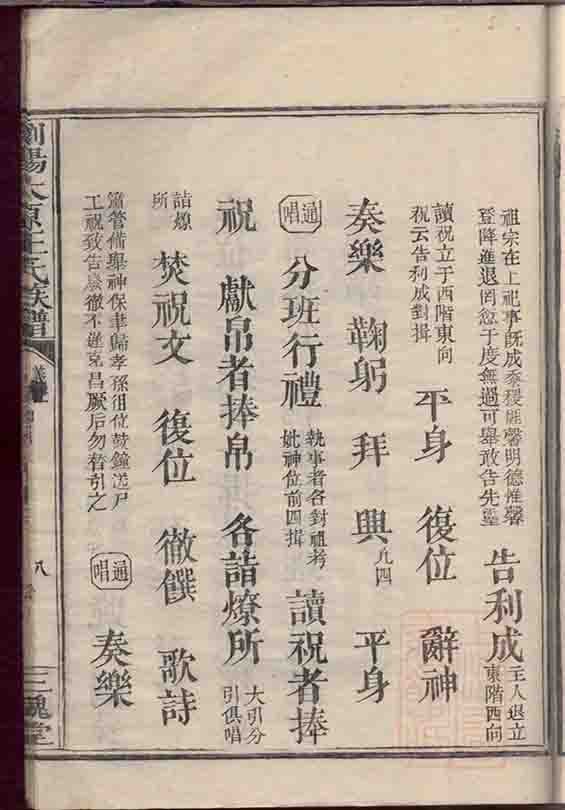 祖宗在上祀事既成黍稷匪馨明德惟馨
登降進退罔愆于度無過可舉敢告先靈
告利成
主人退立
東階西向
讀祝立于西階東向
祝云告利成對揖
平身　復位　辭神
奏樂　鞠躬　拜　興　凡四　平身
通唱　分班行禮
執事者各對祖考
妣神位前四揖
讀祝者捧
祝　獻帛者捧帛　各詣燎所
大引分
引俱唱
詣燎
所
焚祝文　復位　徹饌　歌詩
簫管備舉神保聿歸孝孫徂位鼓鐘送尸
工祝致告廢徹不遲克昌厥后勿替引之
通唱　奏樂
瀏陽太原王氏族譜
八
三槐堂